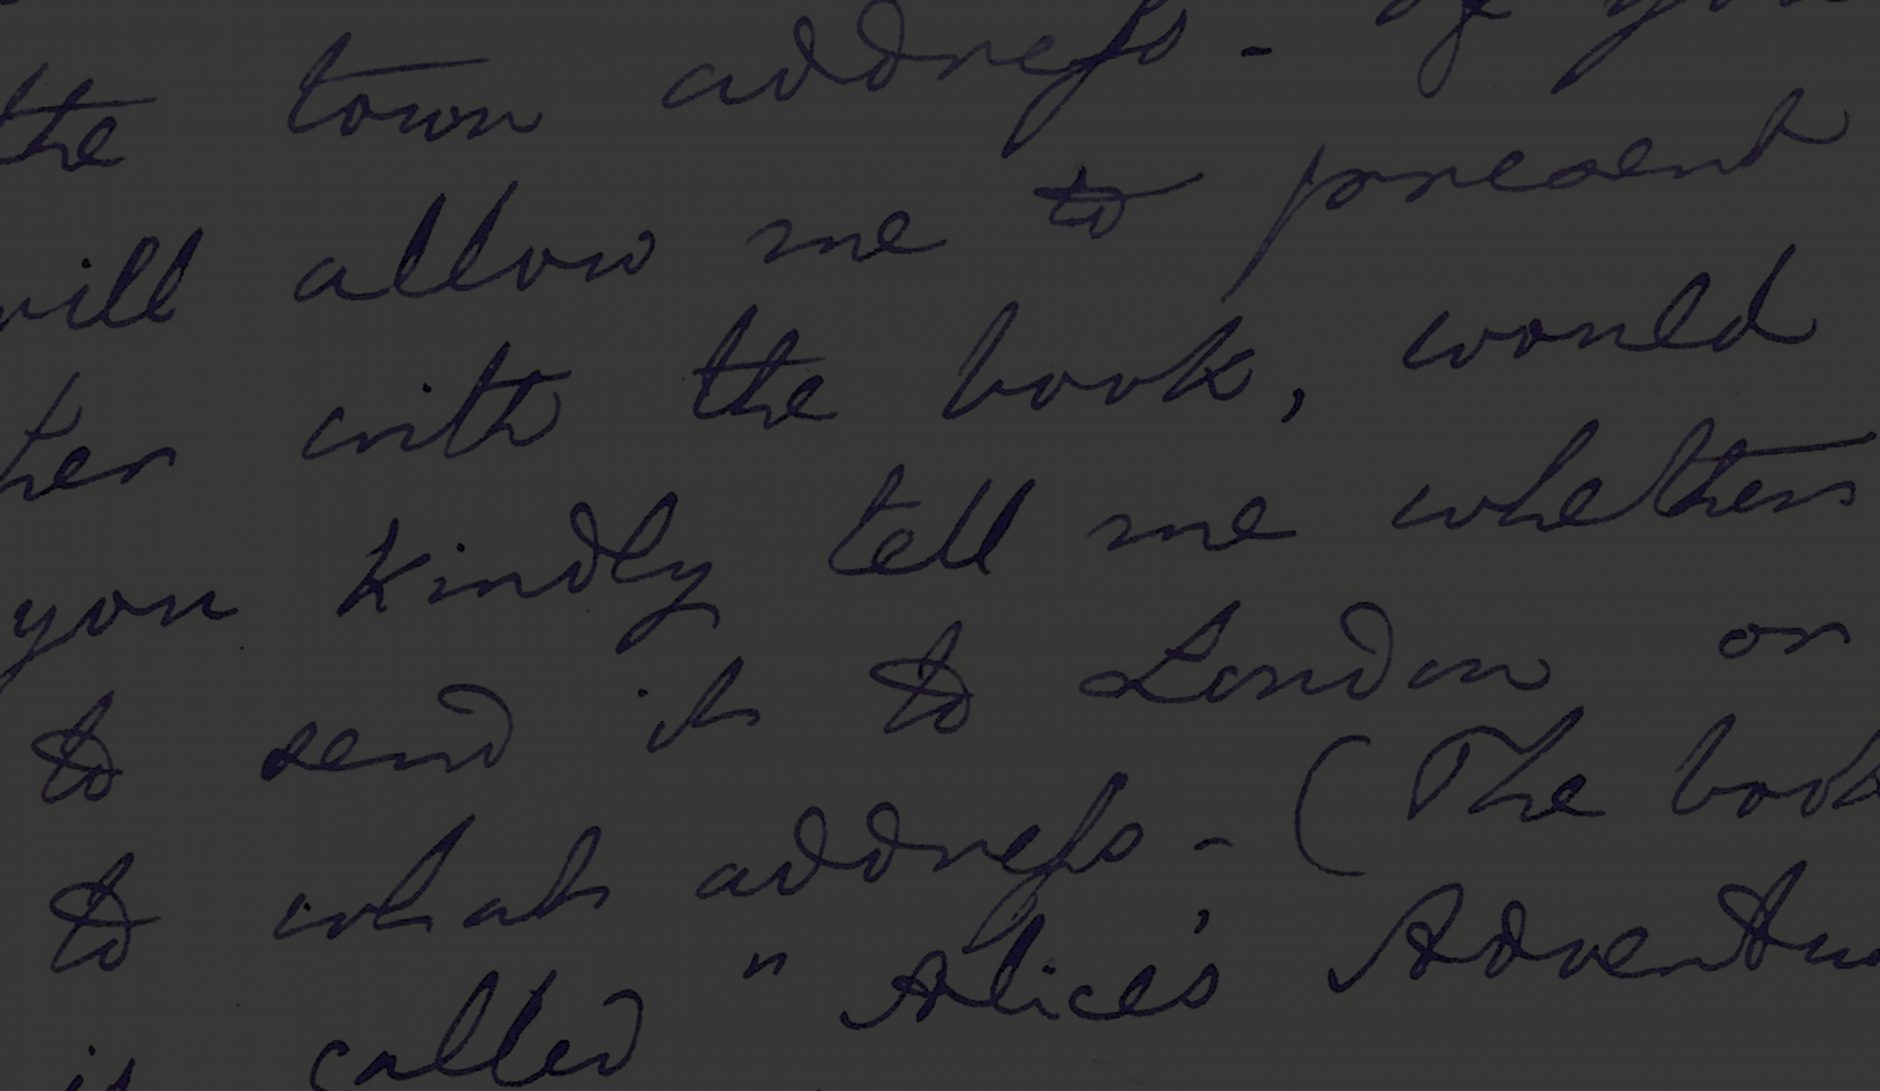 the town address - If you
will allow me to present
her with the book, would
you kindly tell me whether
to send it to London or
to what address - (The book
is called "Alice's Adventu